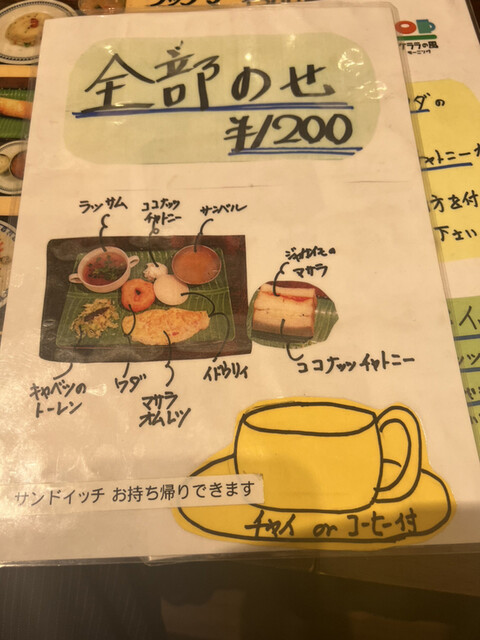 全部のせ
¥1200
ラッサム
ココナッツ
チャトニー
サンバル
ジャガイモの
マサラ
キャベツの
トーレン
ワダ
マサラ
オムレツ
イドゥリィ
ココナッツチャトニー
サンドイッチ お持ち帰りできます
チャイ or コーヒー付
ケララの風
モーニング
ダの
チャトニー
方を付
下さい